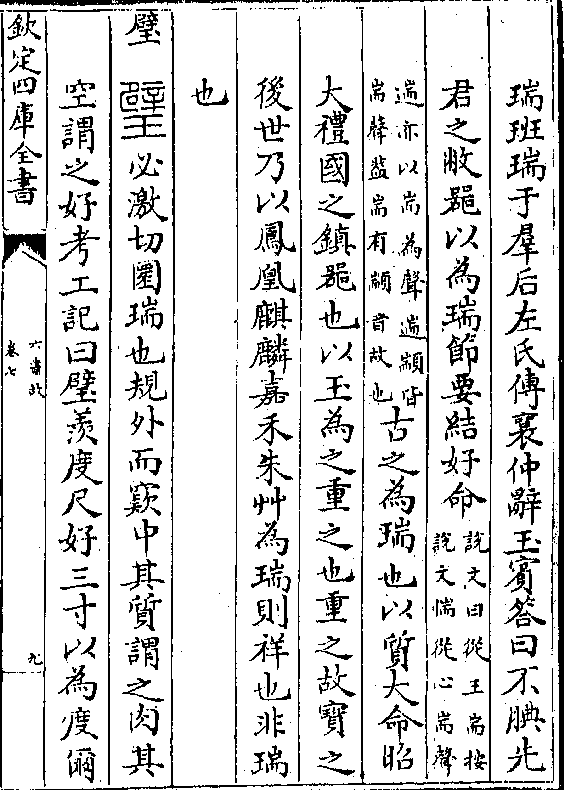 瑞班瑞于羣后左氏傳襄仲辭玉賓答曰不腆先
君之敝噐以為瑞節要結好命說文曰從玉耑按
說文惴從心耑聲
遄亦以耑為聲遄顓皆
耑聲葢耑有顓音故也古之為瑞也以質大命昭
大禮國之鎮噐也以玉為之重之也重之故寶之
後世乃以鳳凰麒麟嘉禾朱艸為瑞則祥也非瑞
也
璧 璧必激切圜瑞也規外而竅中其質謂之肉其
空謂之好考工記曰璧羨度尺好三寸以為度爾
欽定四庫全書
六書故
卷七
九